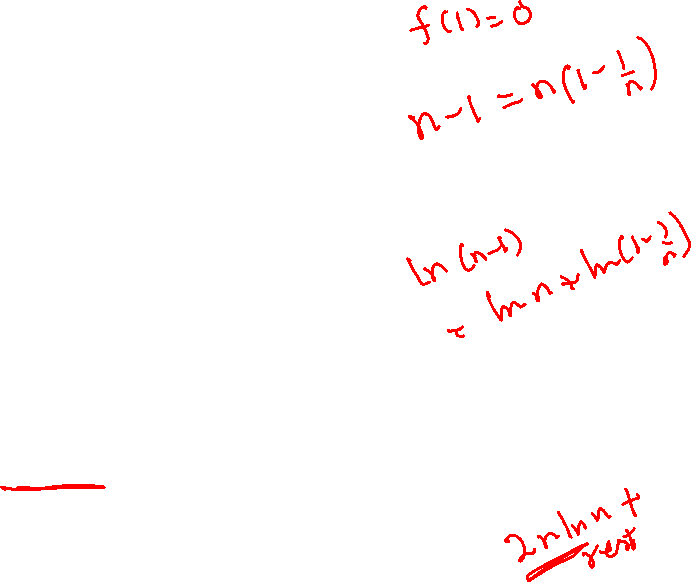 f(1)=0
n-1=n(1-1/n)
ln(n-1)
= ln n + ln(1-1/n)
2n ln n +
rest